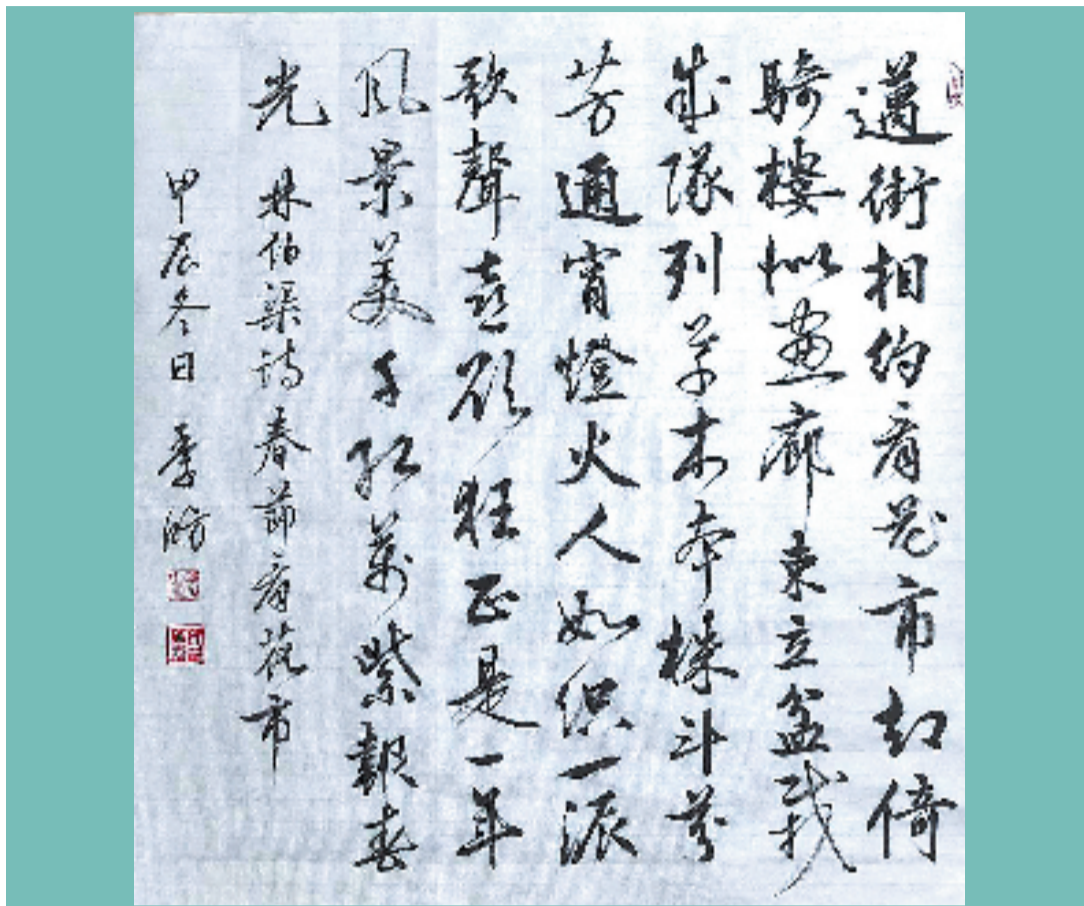 邁街相約看花市却倚
騎樓似畫廊束立盆栽
成隊列草木本株斗芬
芳通宵燈火人如織一派
歌聲喜欲狂正是一年
風景美千紅萬紫報春
光 林伯渠詩春節看花市
甲辰冬日